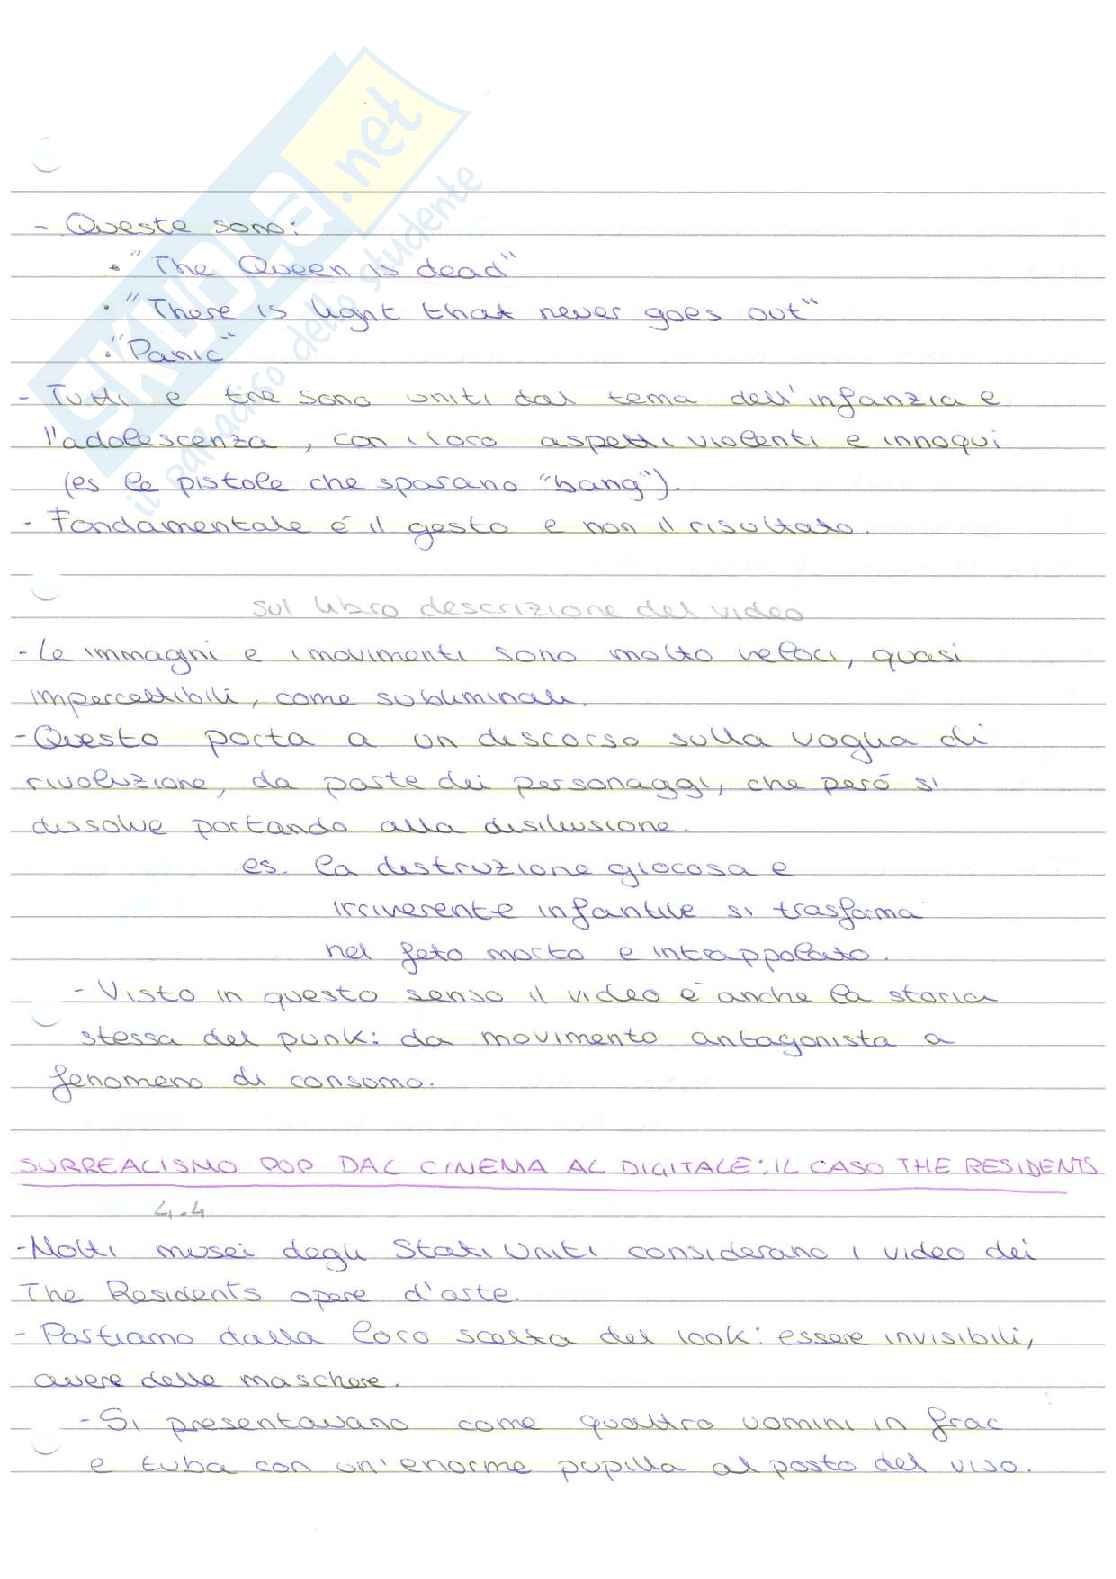 SKUOLA.net
il paradiso dello studente
- Queste sono:
• "The Queen is dead"
• "There is light that never goes out"
• "Panic"
- Tutti e tre sono uniti dal tema dell'infanzia e
l'adolescenza, con i loro aspetti violenti e innoqui
(es le pistole che sparano "bang").
- Fondamentale é il gesto e non il risultato.
sul libro descrizione del video
- Le immagini e i movimenti sono molto veloci, quasi
impercettibili, come subliminali.
- Questo porta a un discorso sulla voglia di
rivoluzione, da parte dei personaggi, che peró si
dissolve portando alla disillusione.
es. la distruzione giocosa e
irriverente infantile si trasforma
nel feto morto e intrappolato.
- Visto in questo senso il video é anche la storia
stessa del punk: da movimento antagonista a
fenomeno di consumo.
SURREALISMO POP DAL CINEMA AL DIGITALE: IL CASO THE RESIDENTS
4.4
- Molti musei degli Stati Uniti considerano i video dei
The Residents opere d'arte.
- Partiamo dalla loro scelta del look: essere invisibili,
avere delle maschere.
- Si presentavano come quattro uomini in frac
e tuba con un'enorme pupilla al posto del viso.